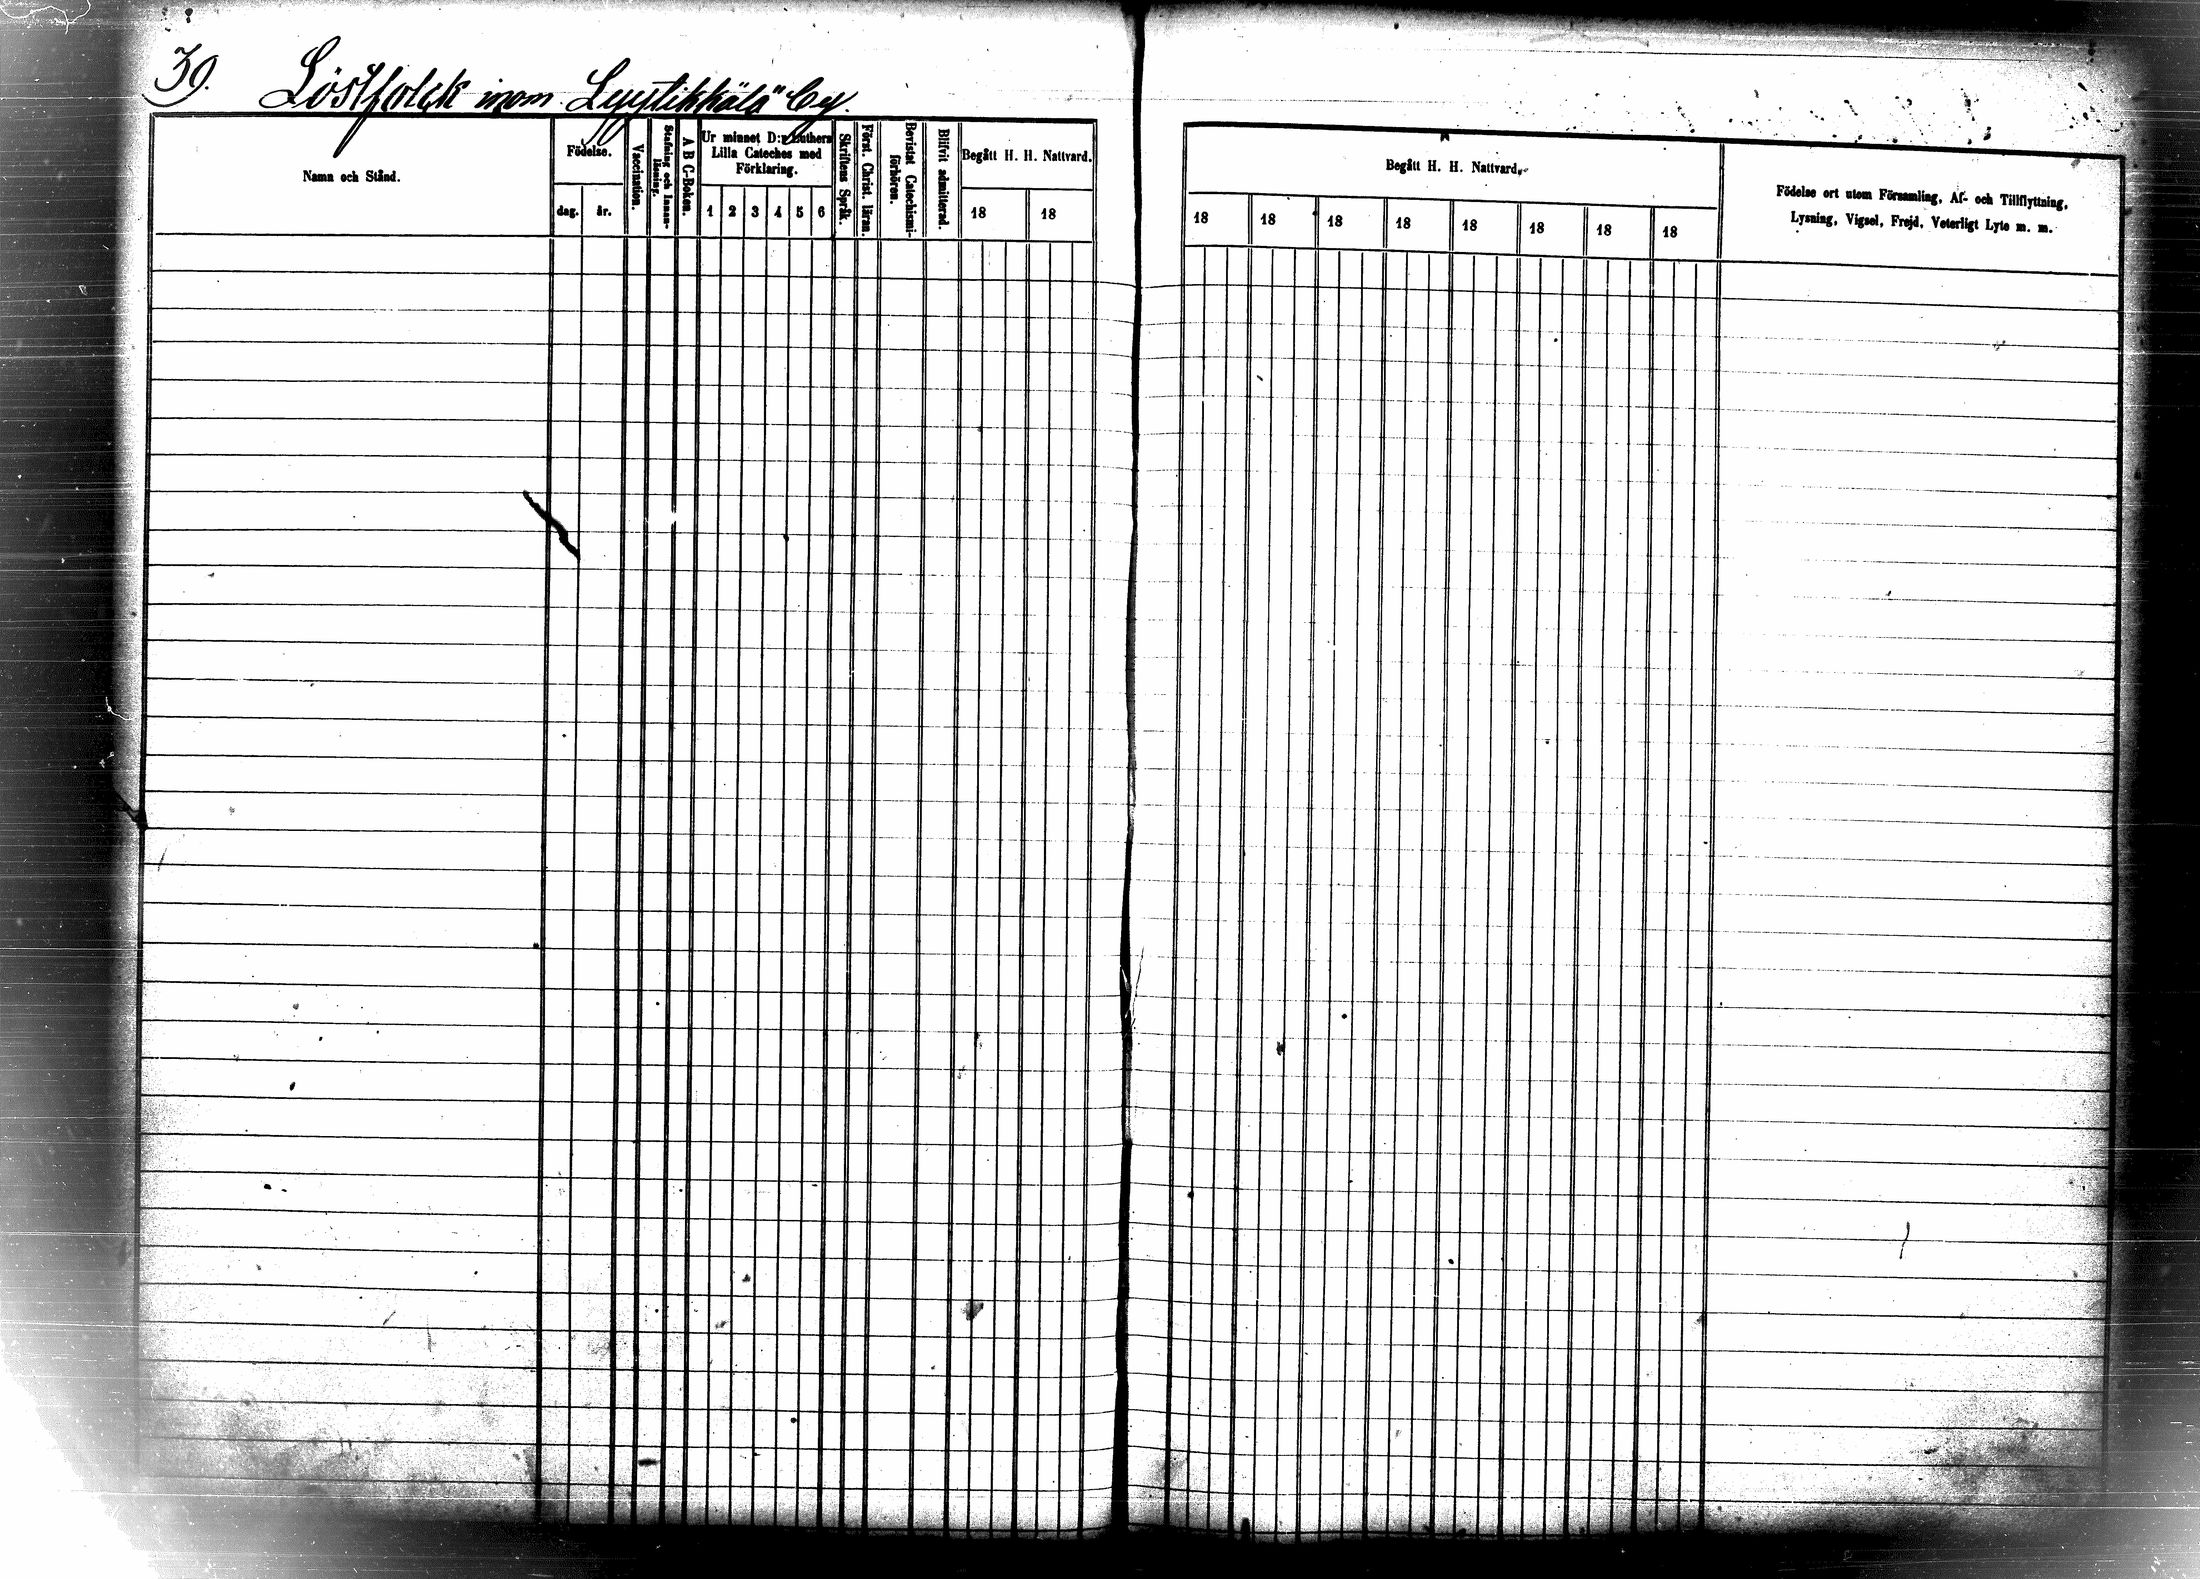 39.
Löstfolck inom Lyytikkälä" By.
Namn och Stånd.
Födelse.
dag. år.
Vaccination.
Stafning och Innan-läsning.
A B C-Boken.
Ur minnet D:r Luthers
Lilla Cateches med
Förklaring.
1 2 3 4 5 6
Skriftens Språk.
Först. Christ. läran.
Bevistat Catechismi-förhören.
Blifvit admitterad.
Begått H. H. Nattvard.
18 18
Begått H. H. Nattvard.
18 18 18 18 18 18 18 18
Födelse ort utom Församling, Af- och Tillflyttning,
Lysning, Vigsel, Frejd, Veterligt Lyte m. m.